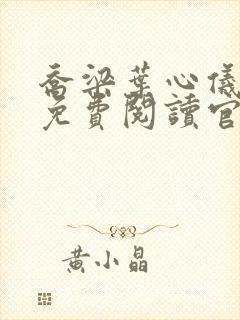 喬梁葉心儀
免費閱讀官
黃小晶